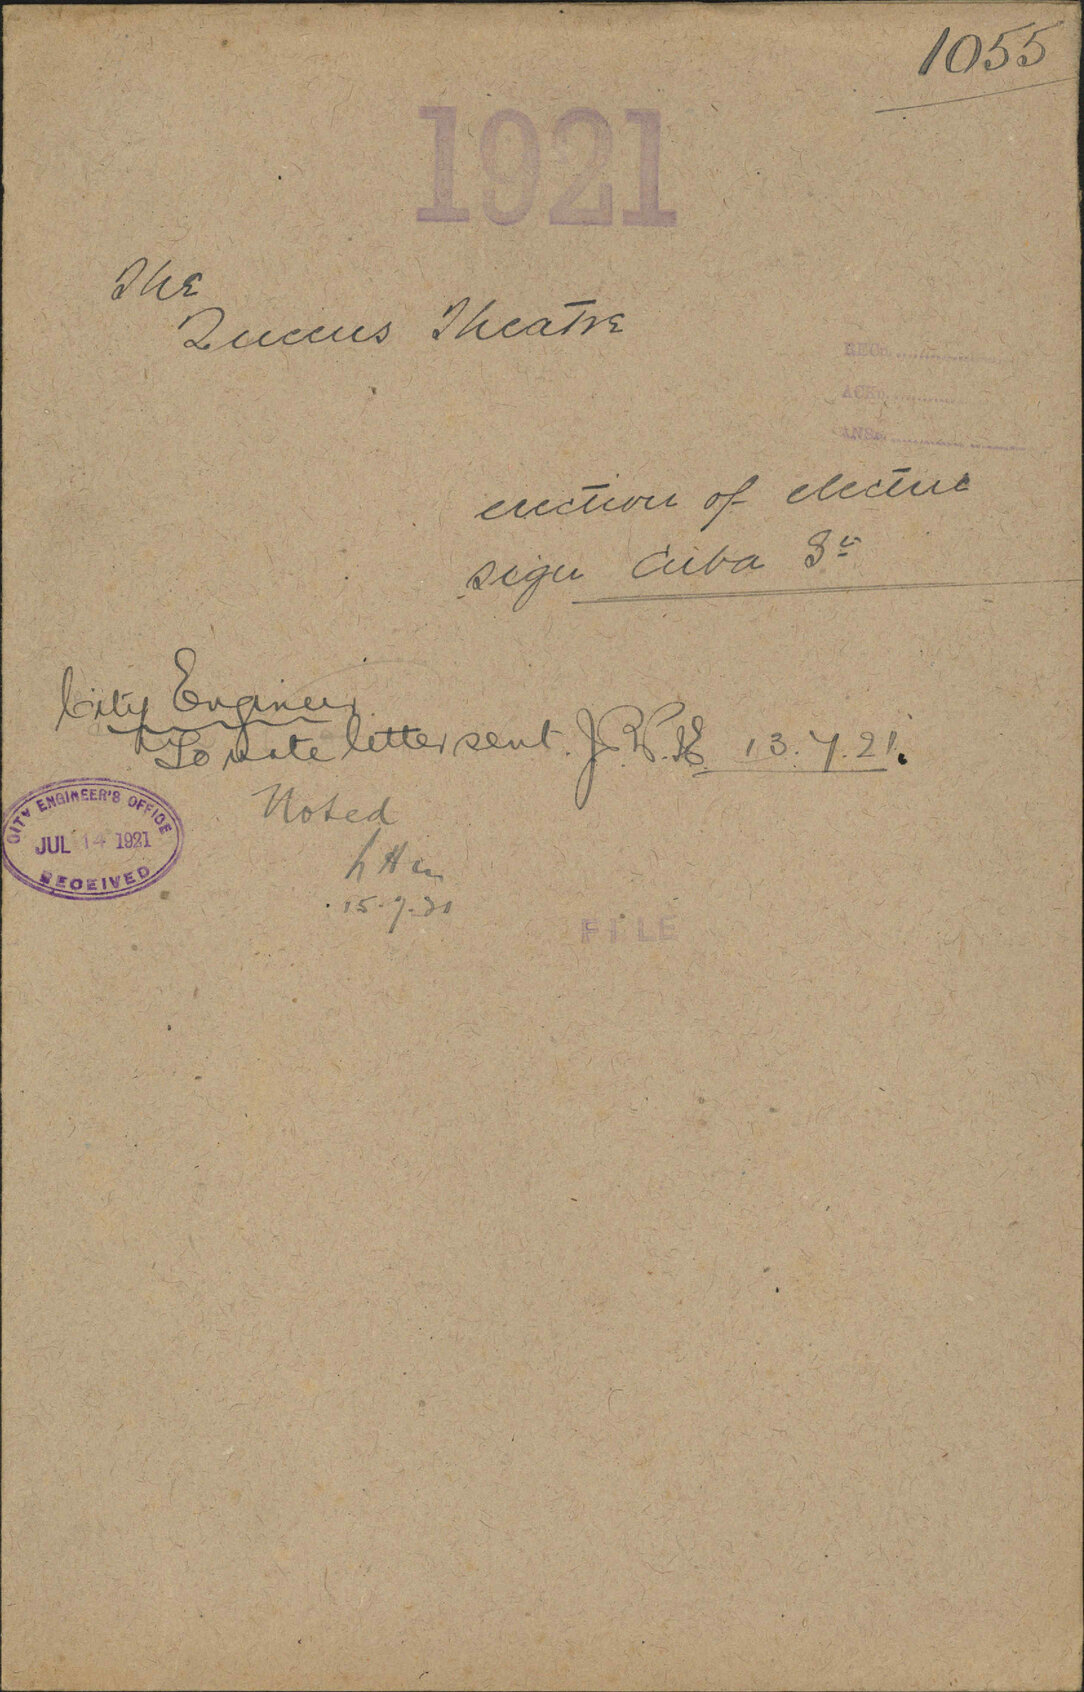 1055
1921
The
Queens Theatre
RECD.
ACKD.
ANSD.
erection of electric
sign Cuba St
City Engineer
To note letter sent. 13.7.21.
CITY ENGINEER'S OFFICE
JUL 14 1921
RECEIVED
Noted
15.7.21
FILE